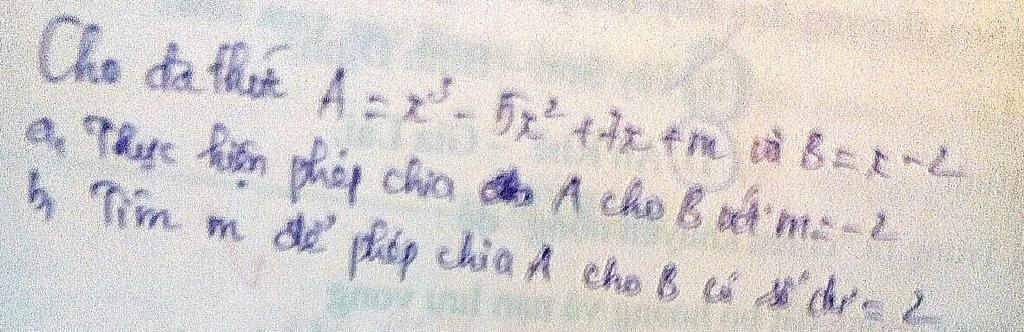 Cho đa thức A = x³ - 5x² + 7x + m và B = x - 2
a, Thực hiện phép chia A cho B với m = -2
b, Tìm m để phép chia A cho B có số dư = 2